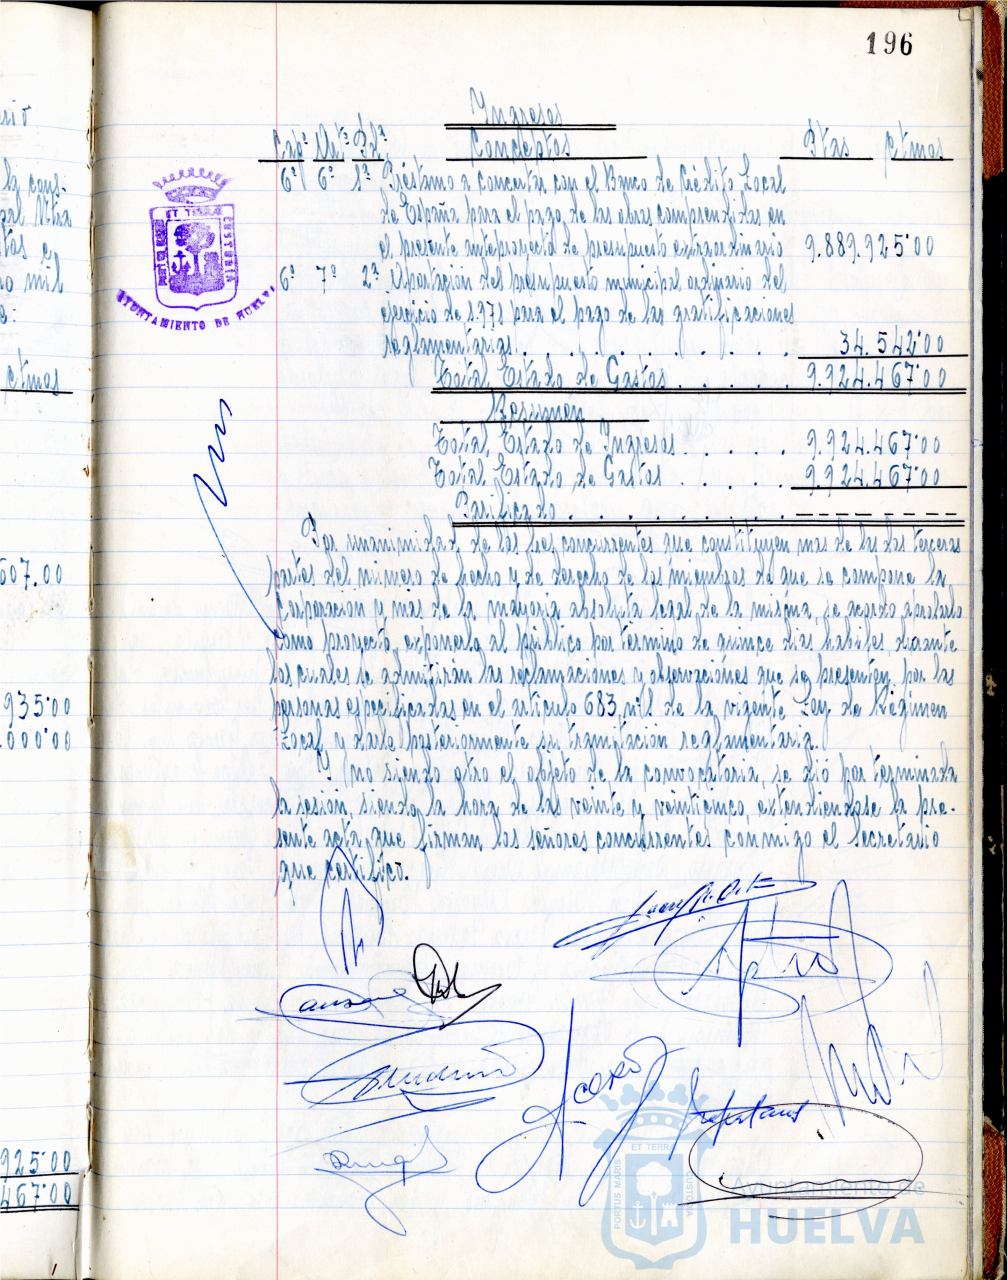 196
Ingresos
Capº Artº Pdª Conceptos Ptas ctmos
6º 6º 1ª Préstamo a concertar con el Banco de Crédito Local
de España para el pago de las obras comprendidas en
el presente anteproyecto de presupuesto extraordinario 9.889.925'00
6º 7º 2ª Aportación del presupuesto municipal ordinario del
ejercicio de 1.971 para el pago de las gratificaciones
reglamentarias. . . . . . . . 34.542'00
Total Estado de Gastos . . . . . 9.924.467'00
Resumen
Total Estado de Ingresos . . . . . 9.924.467'00
Total Estado de Gastos . . . . . 9.924.467'00
. . . . . . . - - - - - - - -
Por unanimidad de los Sres. concurrentes que constituyen mas de las dos terceras
partes del número de hecho y de derecho de los miembros de que se compone la
Corporación y mas de la mayoria absoluta legal de la misma, se acordo aprobarlo
como proyecto, exponerlo al público por término de quince dias habiles, durante
los cuales se admitirán las reclamaciones y observaciones que se presenten por las
personas especificadas en el artículo 683 nº1 de la vigente Ley de Régimen
Local y darle posteriormente su tramitación reglamentaria.
Y no siendo otro el objeto de la convocatoria, se dió por terminada
la sesión, siendo la hora de las veinte y veinticinco, extendiendose la pre-
sente acta, que firman los señores concurrentes conmigo el Secretario
que certifico.
ET TERRA
CUSTODIA
AYUNTAMIENTO DE HUELVA
la cons-
mil
ctmos
607.00
935'00
.000'00
925'00
467'00
ET TERRA
PORTUS MARIS
CUSTODIA
Ayuntamiento de
HUELVA